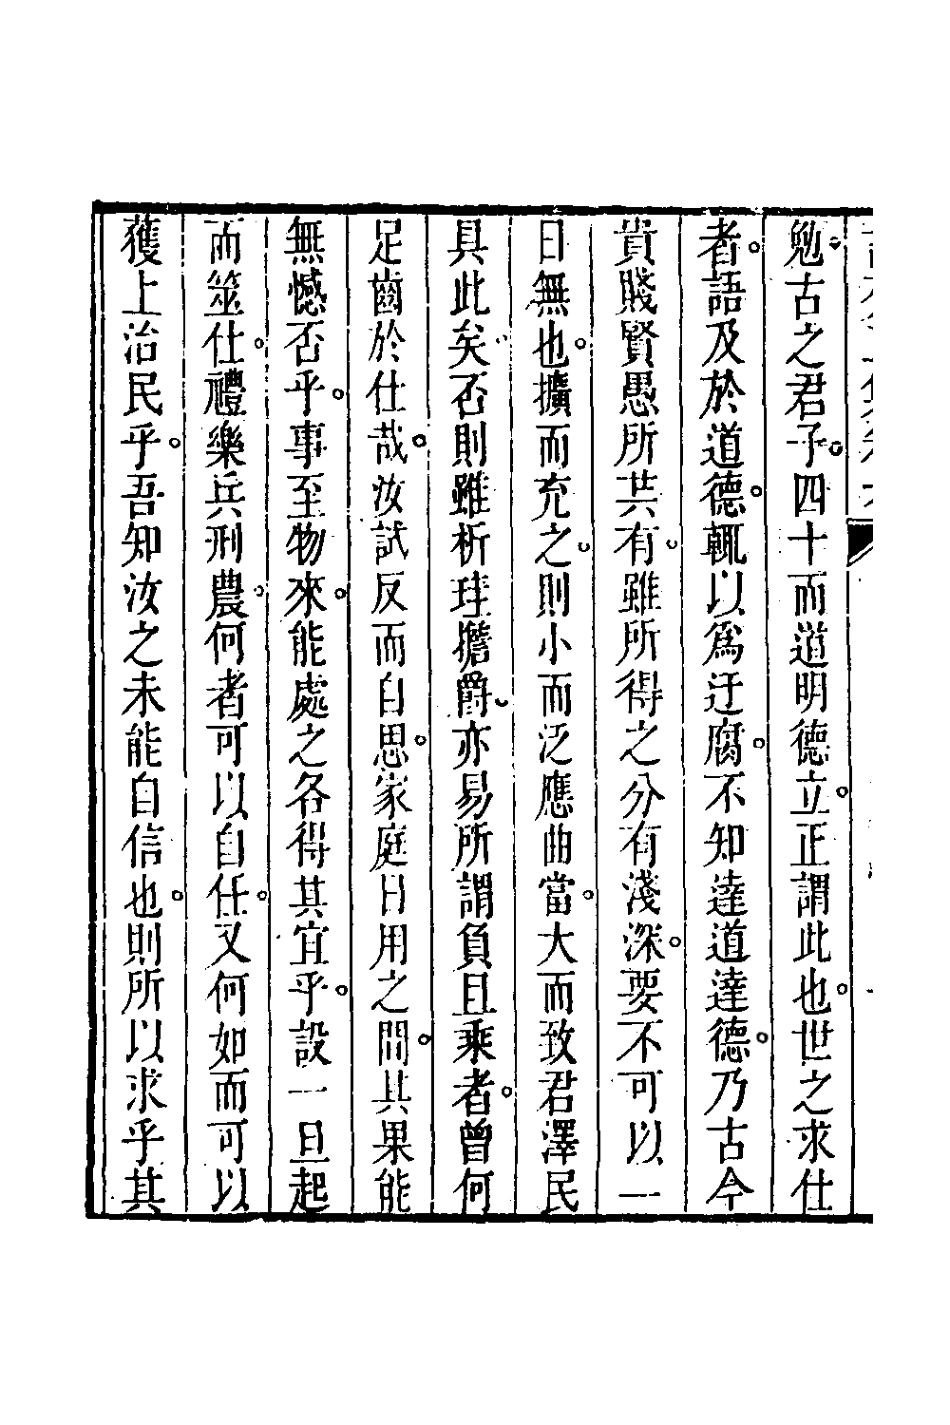 勉古之君子四十而道明德立正謂此也世之求仕
者語及於道德輒以爲迂腐不知達道達德乃古今
貴賤賢愚所共有雖所得之分有淺深要不可以一
日無也擴而充之則小而泛應曲當大而致君澤民
具此矣否則雖析珪擔爵亦易所謂負且乘者曾何
足齒於仕哉汝試反而自思家庭日用之間其果能
無憾否乎事至物來能處之各得其宜乎設一旦起
而筮仕禮樂兵刑農何者可以自任又何如而可以
獲上治民乎吾知汝之未能自信也則所以求乎其